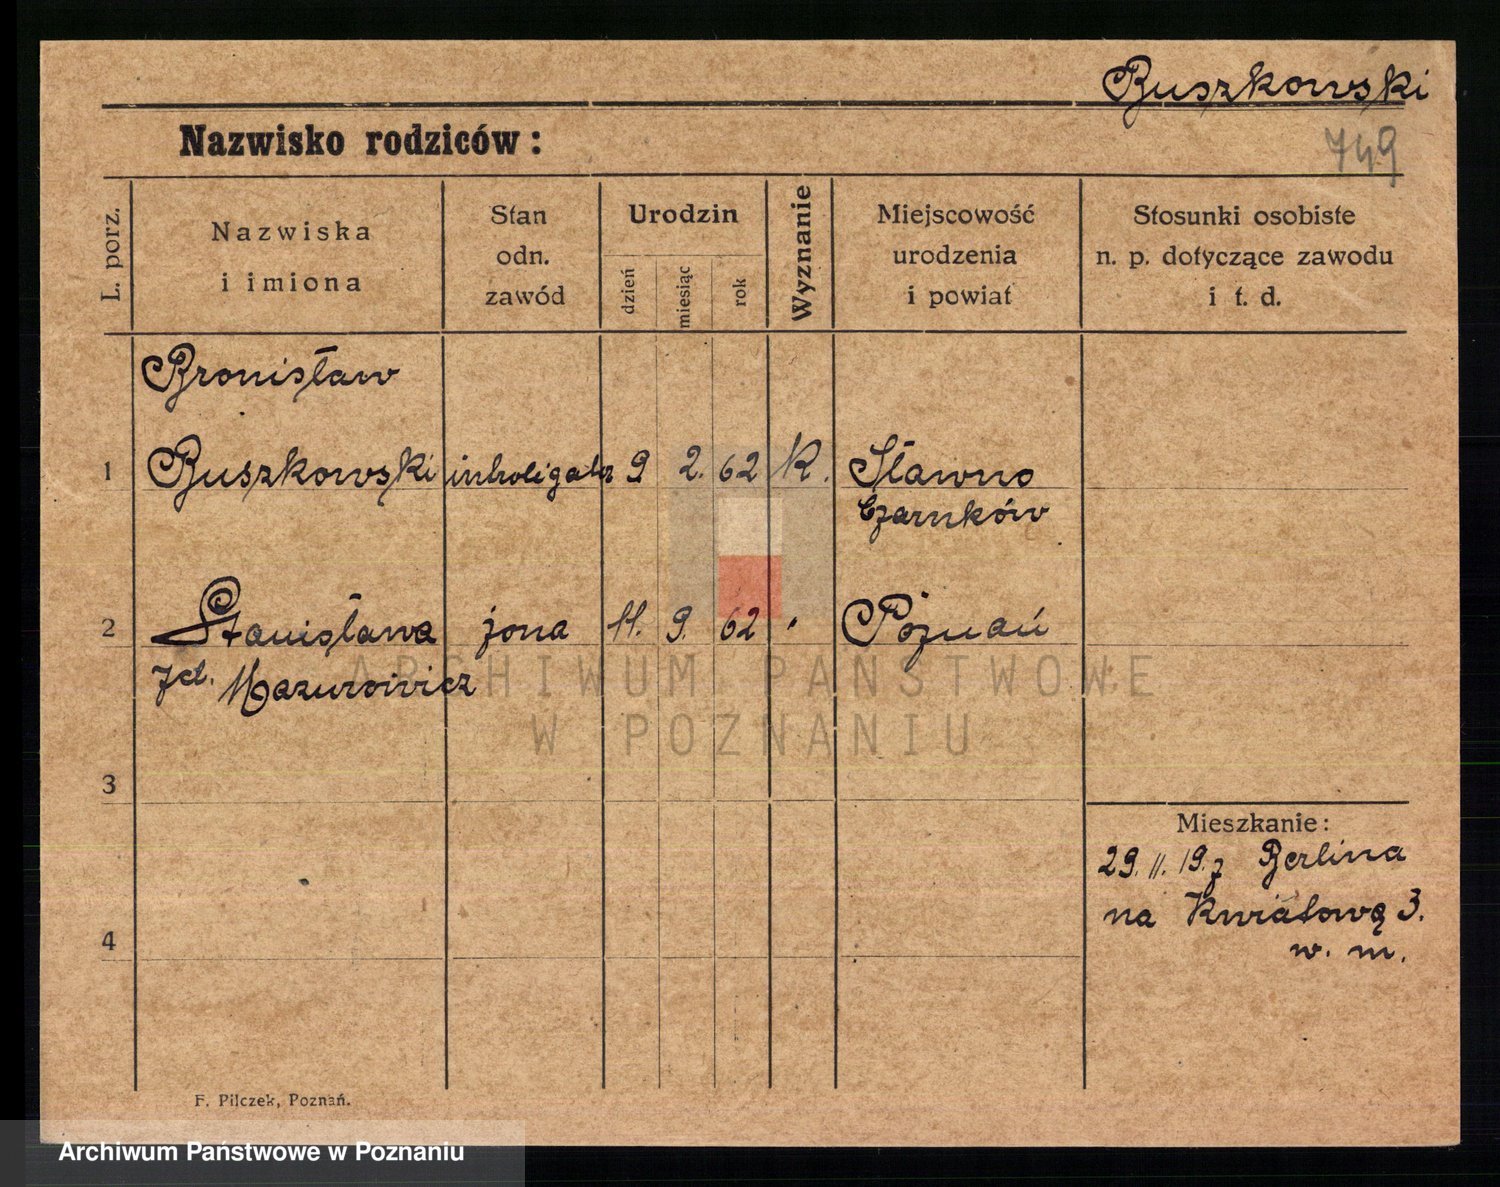 Buszkowski
Nazwisko rodziców:
749
L. porz.
Nazwiska
i imiona
Stan
odn.
zawód
Urodzin
dzień
miesiąc
rok
Wyznanie
Miejscowość
urodzenia
i powiat
Stosunki osobiste
n. p. dotyczące zawodu
i t. d.
Bronisław
1 Buszkowski introligator 9 2. 62 K. Sławno
Czarnków
2 Stanisława żona 11. 9. 62 Poznań
Mazurowicz
ARCHIWUM PAŃSTWOWE
W POZNANIU
3
Mieszkanie:
29. 11. 19. z Berlina
na Kwiatową 3.
w. m.
4
F. Pilczek, Poznań.
Archiwum Państwowe w Poznaniu